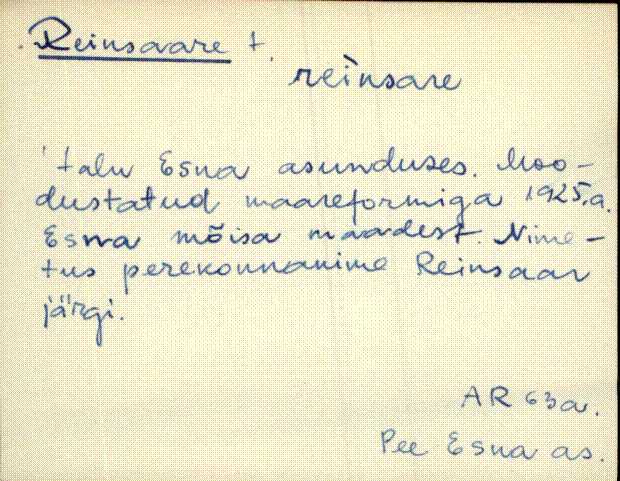 Reinsaare t.
reìnsare
talu Esna asunduses. Moo-
dustatud maareformiga 1925.a.
Esna mõisa maadest. Nime-
tus perekonnanime Reinsaar
järgi.
AR 63a.
Pee Esna as.